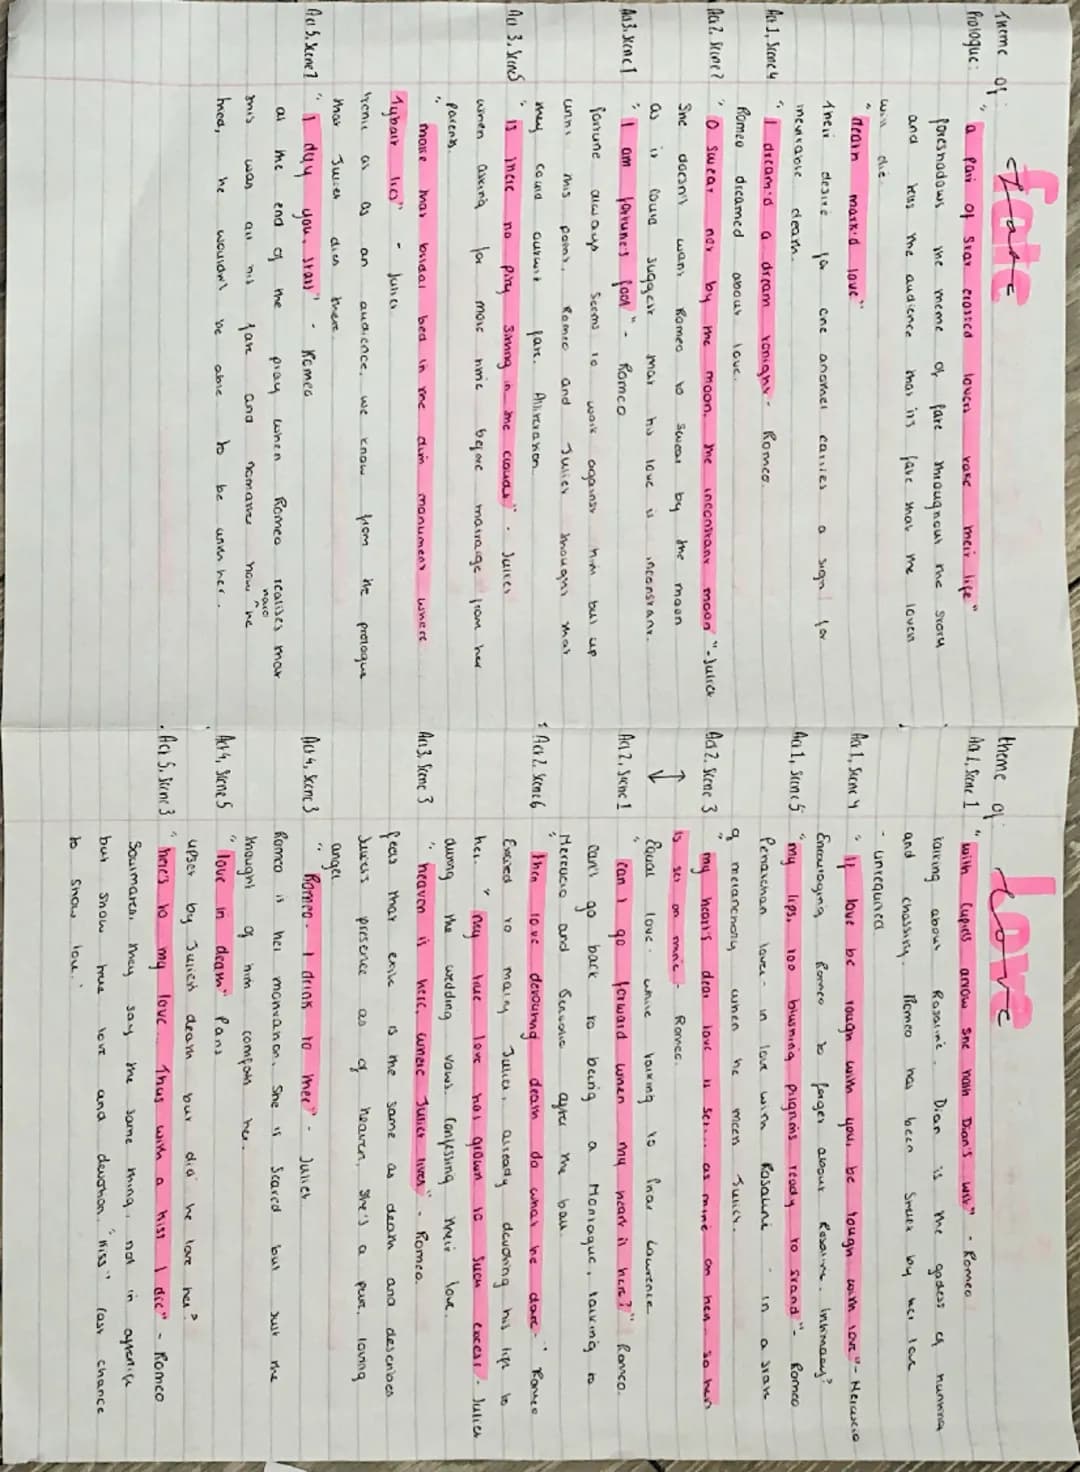 Theme of: Fate
Prologue: "a pair of star crossed lovers take their life"
foreshadows the theme of fate throughout the story
and tells the audience that its fate that the lovers
will die.
"death mark'd love"
Their desire for one another carries a sign for
inevitable death.
Act 1, Scene 4 "I dream'd a dream tonight - Romeo.
Romeo dreamed about love.
Act 2, Scene 2 "O swear not by the moon, the inconstant moon" - Juliet
She doesn't want Romeo to swear by the moon
as it could suggest that his love is inconstant.
Act 3, Scene 1 "I am fortune's fool" - Romeo
fortune always seems to work against him but up
until this point, Romeo and Juliet thought that
they could outwit fate. Alliteration.
Act 3, Scene 5 "Is there no pity sitting in the clouds" - Juliet
when asking for more time before marraige from her
parents.
"make that bridal bed in the dim monument where
Tybalt lies" - Juliet
Ironic as as an audience, we know from the prologue
that Juliet dies there.
Act 5, Scene 1 "I defy you, stars" - Romeo
at the end of the play when Romeo realises that
this was all his fate and nomatter how he
hard
tried, he wouldn't be able to be with her.
theme of: Love
Act 1, Scene 1 "with Cupid's arrow she hath Dian's wit" - Romeo
talking about Rosaline. Dian is the godess of hunting
and chastity. Romeo has been struck by her love
- unrequited
Act 1, Scene 4 "If love be rough with you, be rough with love" - Mercutio
Encouraging Romeo to forget about Rosaline. Intimacy?
Act 1, Scene 5 "my lips, too blushing pilgrims ready to stand" - Romeo
Petrarchan lover - in love with Rosaline - in a state
of melancholy when he meets Juliet.
Act 2, Scene 3 "my heart's dear love is set... as mine on hers - so hers
is set on mine - Romeo.
Equal love. while talking to Friar Lawrence
Act 2, Scene 1 "Can I go forward when my heart is here?" Romeo.
Can't go back to being a Montague, talking to
Mercutio and Benvolio after the ball.
Act 2, Scene 6 "Then love devouring death do what he dare" - Romeo
Excited to marry Juliet, already devoting his life to
her. "my true love has grown to such excess - Juliet
during the wedding vows. Confessing their love.
Act 3, Scene 3 "heaven is here, where Juliet lives" - Romeo.
feels that exile is the same as death and describes
Juliet's presence as of heaven, she's a pure loving
angel
Act 4, Scene 3 "Romeo - I drink to thee" - Juliet.
Romeo is her motivation. She is scared but just the
thought of him comforts her.
Act 4, Scene 5 "love in death" Paris
upset by Juliet's death but did he love her?
Act 5, Scene 3 "here's to my love... Thus with a kiss I die" - Romeo
Soulmates. They say the same thing, not in
but show true love and devotion. "kiss" last chance
to show love.